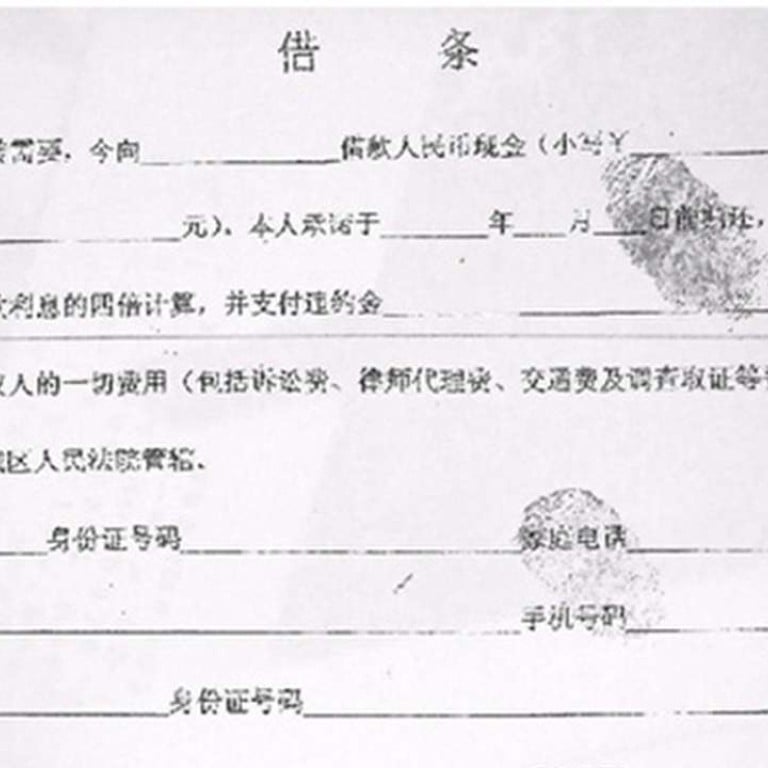 借 条
需要，今向____借款人民币现金（小写￥____
____元）。本人承诺于____年____月____日前归还，
利息的四倍计算，并支付违约金____
人的一切费用（包括诉讼费、律师代理费、交通费及调查取证等
区人民法院管辖。
____身份证号码____家庭电话____
____手机号码____
____身份证号码____